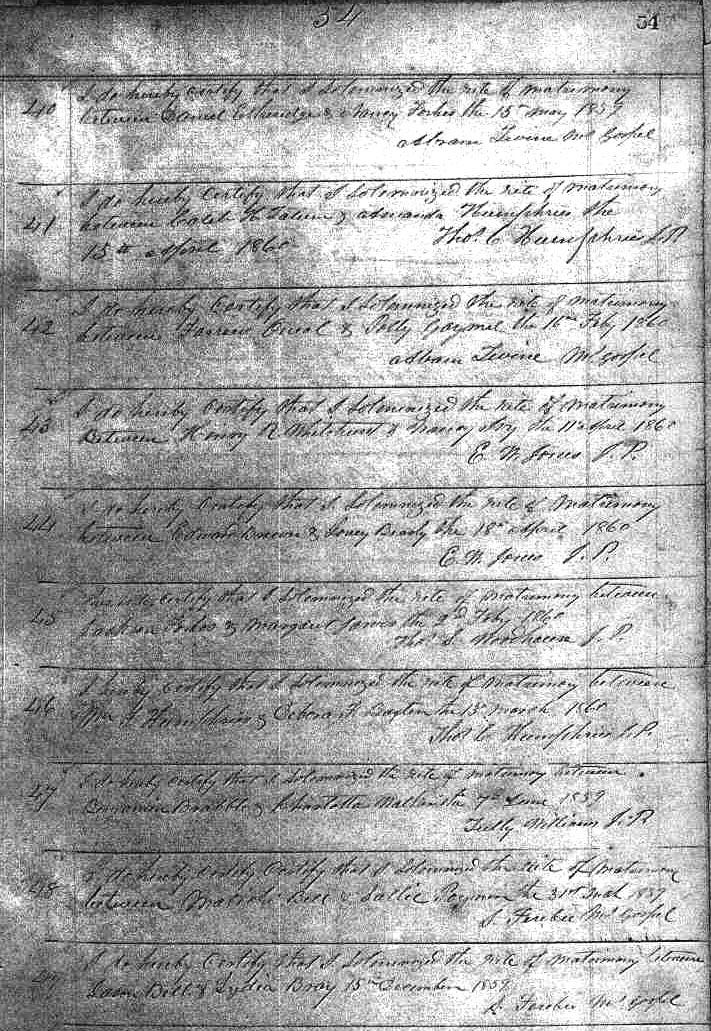 54
54
40 I do hereby certify that I Solemnized the rite of matrimony
between Daniel Etheridge & Nancy Forbes the 15th may 1859
Abram Levine M Gospel
41 I do hereby Certify that I Solemnized the rite of matrimony
between Caleb H Tatum & Amanda Humphries the
15th April 1860 Thos. C Humphries J.P.
42 I do hereby Certify that I Solemnized the rite of matrimony
between & Polly the 16th Feby 1860
Abram Levine M gospel
43 I do hereby Certify that I Solemnized the rite of Matrimony
Between Henry R Whitehurst & the 11 april 1860
E. W. Jones J. P.
44 I do hereby Certify that I Solemnized the rite of Matrimony
between Edward Brown & the 18th April 1860
E. W. Jones J. P.
45 certify that I Solemnized the rite of matrimony between
Jackson & Margaret James the 2nd Feby 1860
Thos. S. Woodhouse J. P.
46 I hereby Certify that I Solemnized the rite of Matrimony between
Wm Humphries & Deborah the 13th March 1860
Thos C Humphries J.P.
47 I do hereby certify that I Solemnized the rite of matrimony between
Benjamin Brabble & the 7th June 1859
Tully Williams J.P.
48 I do hereby Certify Certify that I Solemnized the rite of Matrimony
between Bell & Sallie the 31st 1859
S. Ferebee M Gospel
49 I do hereby Certify that I Solemnized the rite of Matrimony between
Bell & Lydia Bray 15th December 1859
S. Ferebee M gospel